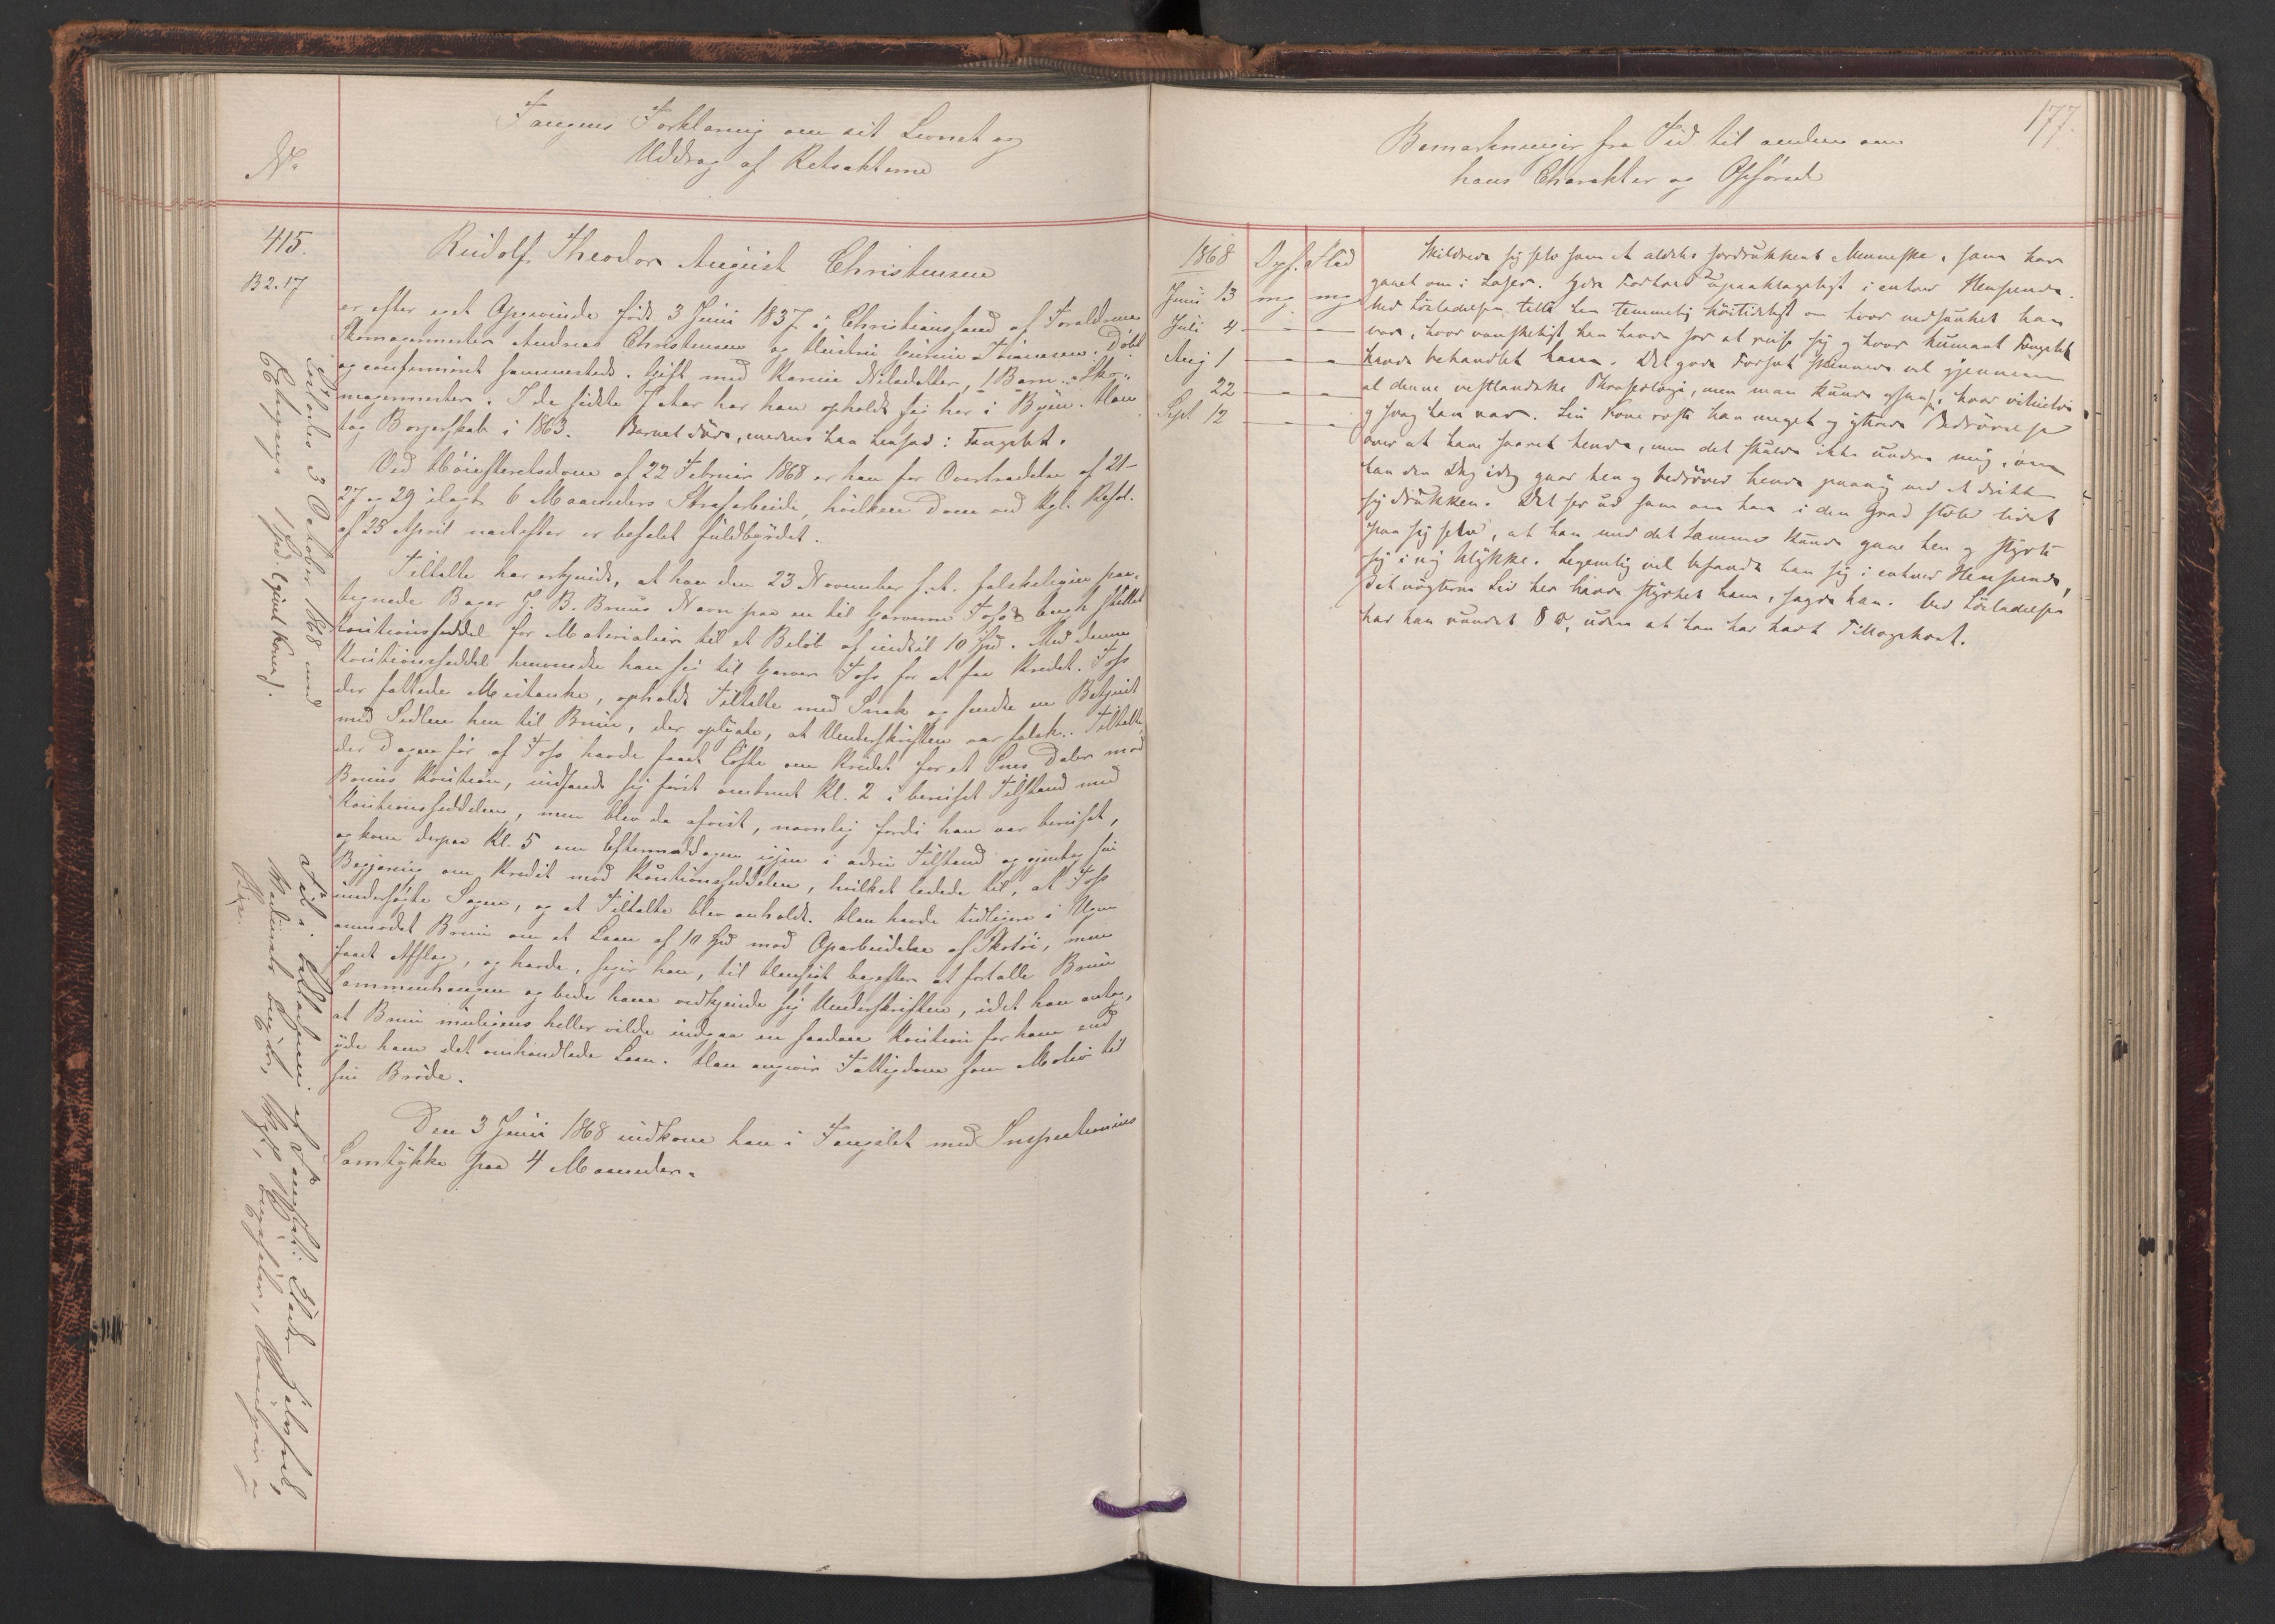 Fangens Forklaring om sit Levnet og
Uddrag af Retsakterne
No
415.
B 2. 17
Rudolf Theodor August Christensen
er efter eget Opgivende født 3 Juni 1837 i Christianssand af Forældrene
Skomagermester Andreas Christensen og Hustru Gunnia Døbt
og confirmeret sammesteds. Gift med Karine Nilsdatter, 1 Barn. Sko-
magermester. I de sidste 7 Aar har han opholdt sig her i Byen. Han
tog Borgerskab i 1863. Barnet døde, medens han hensad i Fængslet.
Ved Høiesteretsdom af 22 Februar 1868 er han for Overtrædelse af 21-
27 og 29 ilagt 6 Maaneders Strafarbeide, hvilken Dom ved Kgl. Resol.
af 25 April næstefter er befalet fuldbyrdet.
Tiltalte har erkjendt, at han den 23 November f. A. falskeligen paa-
tegnede Bager J. B. Bruns Navn paa en til Garverne Foss & stillet
Kautionsseddel for Materialier til et Beløb af indtil 10 Spd. Med denne
Kautionsseddel henvendte han sig til Garver Foss for at faa Kredit. Foss
der fattede Mistanke, opholdt Tiltalte med Snak og sendte en Betjent
med Sedlen hen til Brun, der oplyste, at Underskriften var falsk. Tiltalte,
der Dagen før af Foss havde faaet Løfte om Kredit for et Snes Daler mod
Bruns Kaution, indfandt sig først omtrent Kl. 2 i beruset Tilstand med
Kautionsseddelen, men blev da afvist, navnlig fordi han var beruset,
og kom derpaa Kl. 5 om Eftermiddagen igjen i ædru Tilstand og gjentog sin
Begjæring om Kredit mod Kautionsseddelen, hvilket ledede til, at Foss
undersøgte Sagen, og at Tiltalte blev anholdt. Han havde tidligere i Ugen
anmodet Brun om et Laan af 10 Spd mod Oparbeidelse af Skotøi, men
faaet Afslag, og havde, siger han, til Hensigt bagefter at fortælle Brun
Sammenhængen og bede ham vedkjende sig Underskriften, idet han antog,
at Brun muligens heller vilde indgaa en saadan Kaution for ham end
yde ham det omhandlede Laan. Han angiver Fattigdom som Motiv til
sin Brøde.
Den 3 Juni 1868 indkom han i Fængslet med Inspectionens
Samtykke paa 4 Maaneder.
Løslodes 3 October 1868 med
66 1 Spd. (givet Konen).
177.
Bemærkninger fra Tid til anden om
hans Charakter og Opførsel
1868 Opf. Flid
Juni 13 mg mg
Juli 4 - - -
Aug 1 - - -
22 - - -
Sept 12 - - -
Skildrede sig selv som et aldeles fordrukkent Menneske, som har
gaaet om i Laser. Hans Forhold upaaklageligt i enhver Henseende.
Ved Løsladelsen talte han temmelig høitideligt om hvor nedsunket han
var, hvor vanskeligt han havde for at reise sig og hvor humant Fængslet
havde behandlet ham. Det gode Forsæt skinnede vel gjennem
al denne vestlandske Phraseologi, men man kunde ogsaa se, hvor
og svag han var. Sin Kone roste han meget og yttrede Bedrøvelse
over at have saaret hende, men det skulde ikke undre mig, om
han den Dag idag gaar hen og bedrøver hende paany ved at drikke
sig drukken. Det ser ud som om han i den Grad stoler lidet
paa sig selv, at han med det samme kunde gaae hen og styrte
sig i ny Ulykke. Legemlig vel befandt han sig i enhver Henseende,
det nøgterne Liv her havde styrket ham, sagde han. Ved Løsladelsen
har han vundet 8 uden at han har havt Tillægskost.